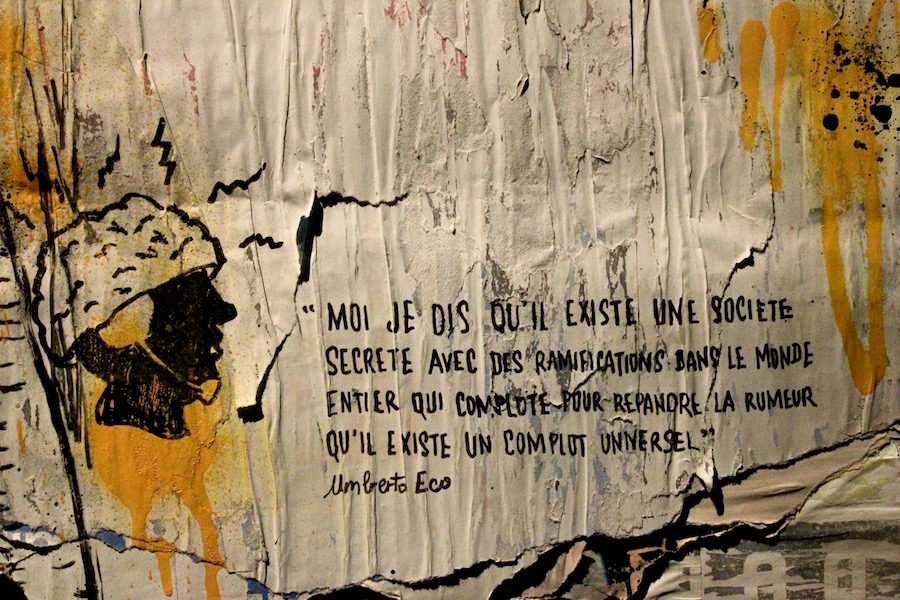 “ MOI JE DIS QU'IL EXISTE UNE SOCIETE
SECRETE AVEC DES RAMIFICATIONS DANS LE MONDE
ENTIER QUI COMPLOTE POUR REPANDRE LA RUMEUR
QU'IL EXISTE UN COMPLOT UNIVERSEL ”
Umberto Eco